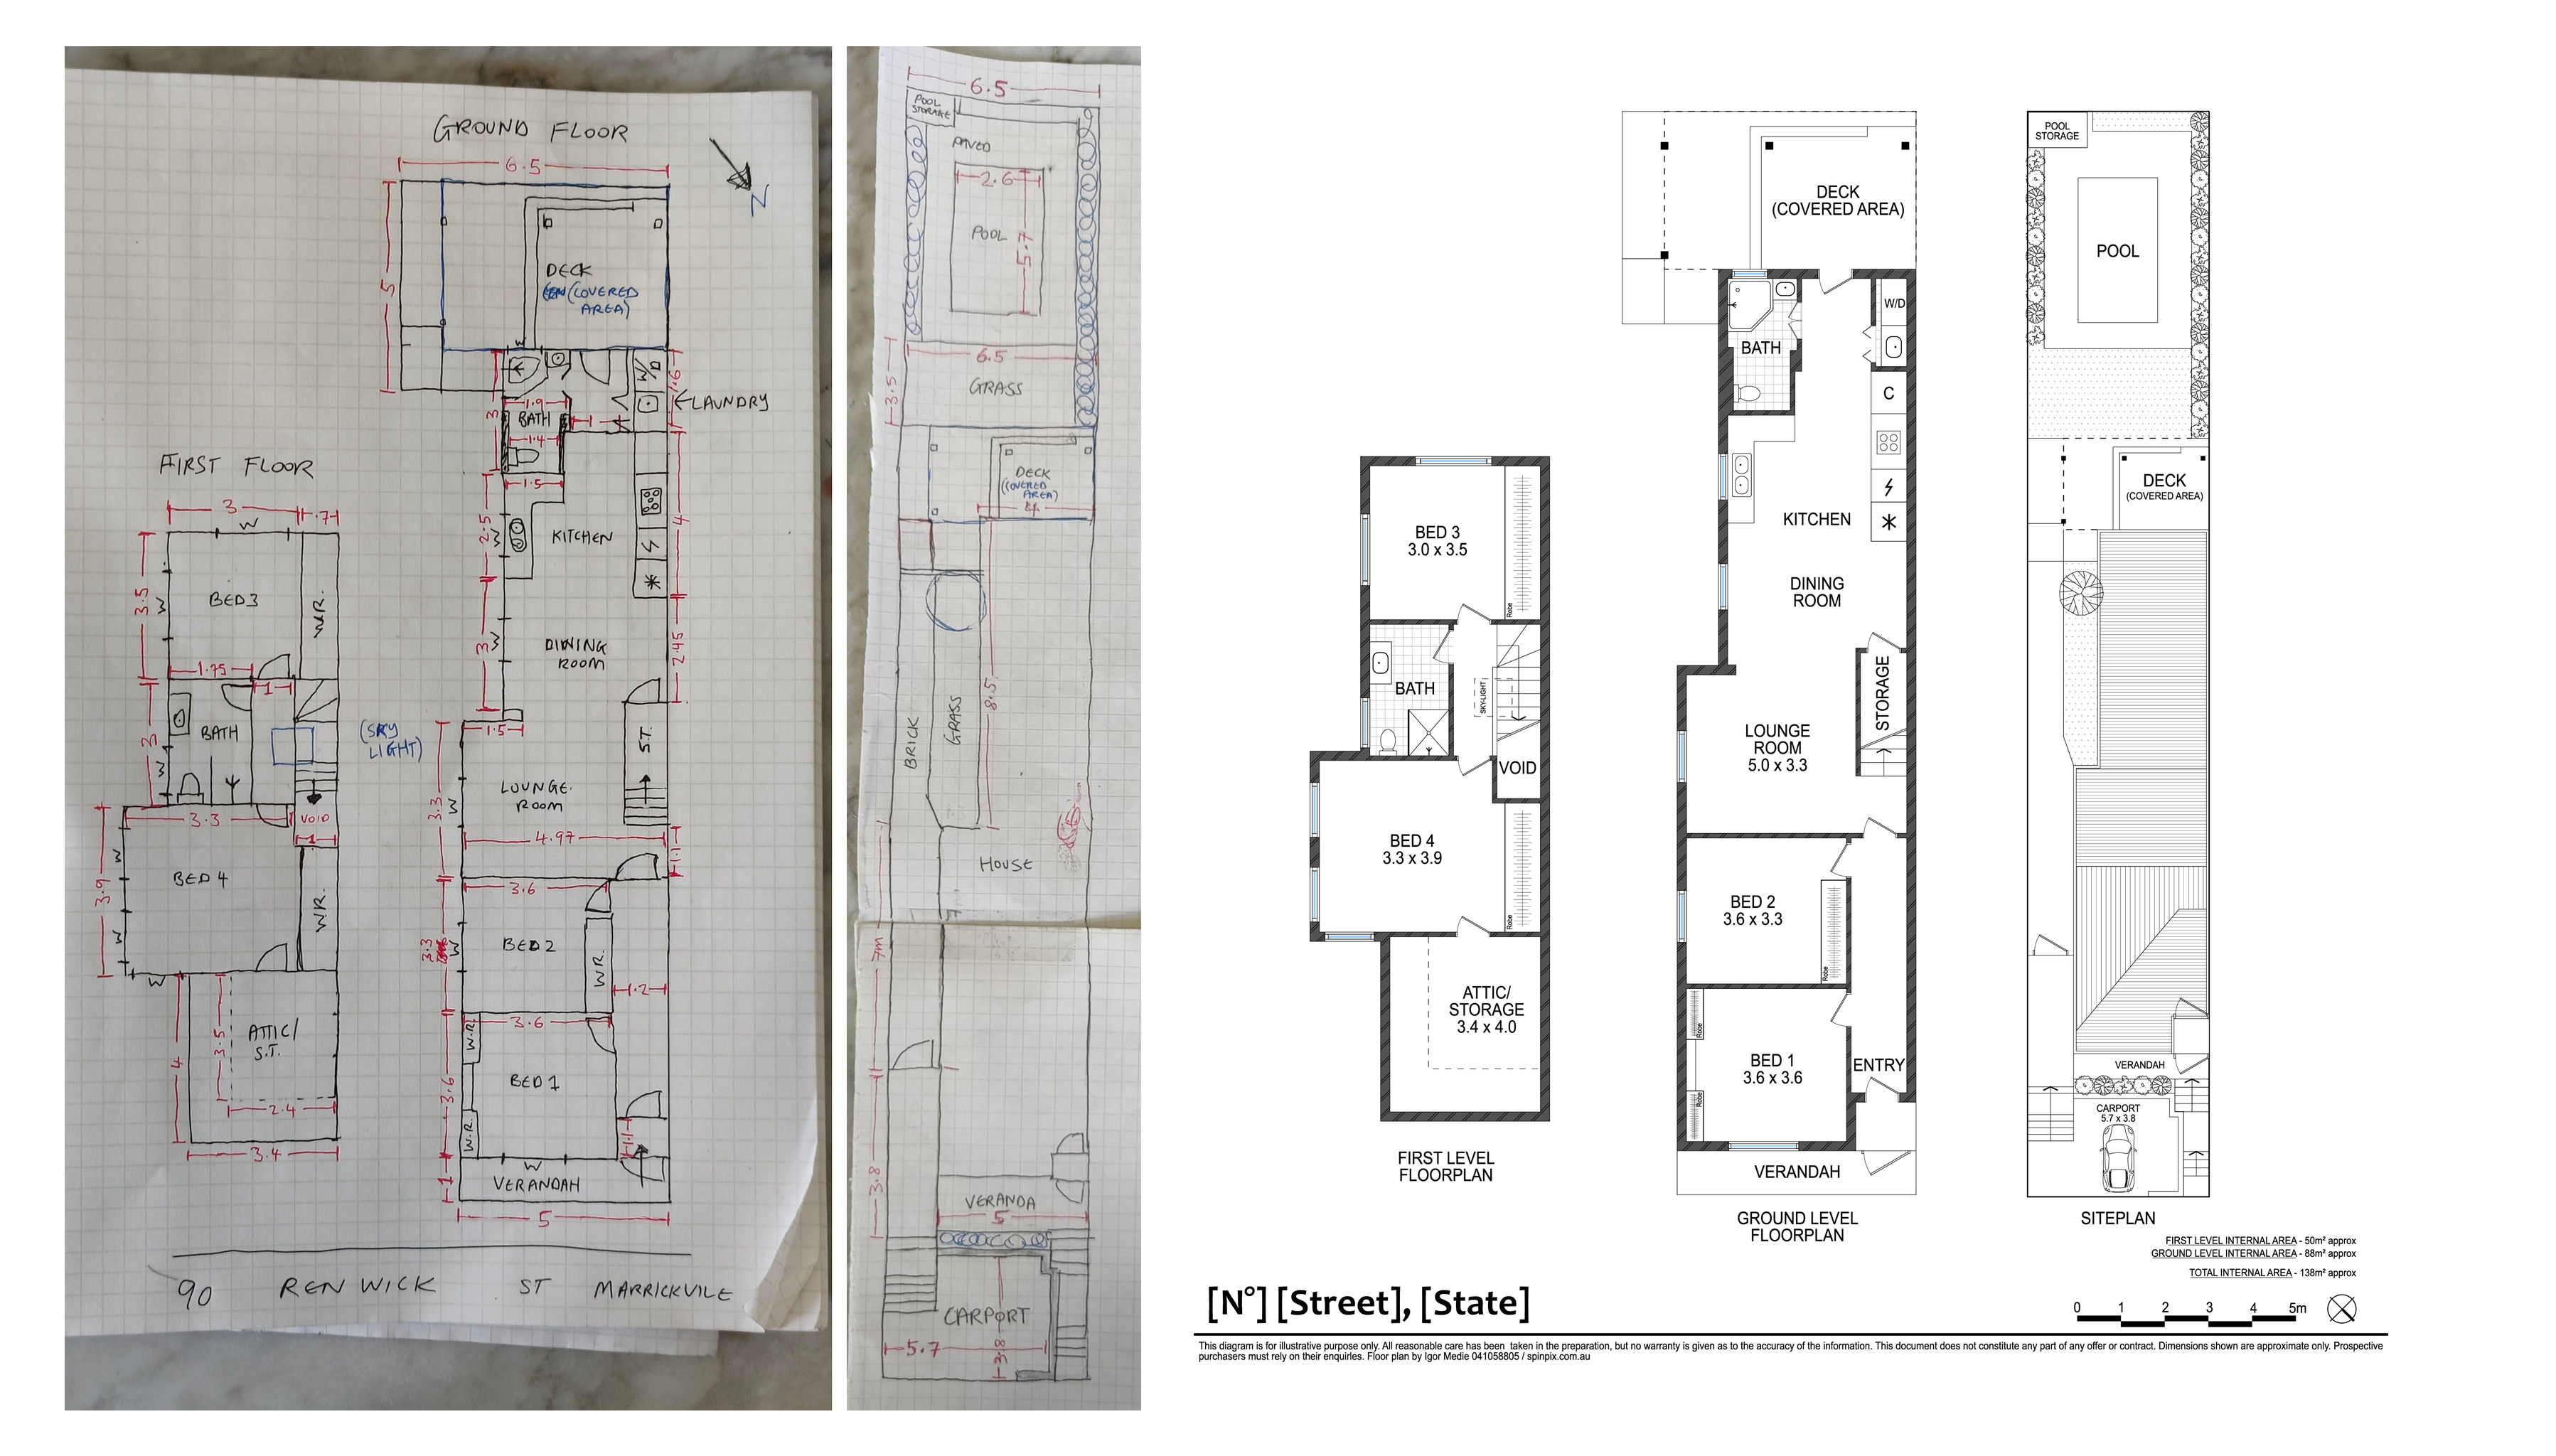 GROUND FLOOR
6.5
N
5
DECK
(COVERED
AREA)
W
W/D
1.6
LAUNDRY
3
1.9
BATH
1
1.4
1.5
2.5
W
KITCHEN
4
3
W
DINING
ROOM
2.45
1.5
S.T.
LOUNGE
ROOM
3.3
W
4.97
1.1
3.6
3.3
W
BED 2
W.R.
1.2
3.6
W.R.
BED 1
3.6
W.R.
1.1
W
VERANDAH
1
5
FIRST FLOOR
3
.7
W
3.5
W
BED 3
W.R.
1.75
1
3
BATH
W
W
(SKY
LIGHT)
3.3
VOID
1
3.9
W
W
BED 4
W.R.
W
4
3.5
ATTIC/
S.T.
2.4
3.4
90 RENWICK ST MARRICKVILE
6.5
POOL
STORAGE
PAVED
2.6
POOL
5.7
6.5
3.5
GRASS
DECK
(COVERED
AREA)
4
8.5
BRICK
GRASS
HOUSE
7m
7m
3.8
VERANDA
5
CARPORT
5.7
3.8
BED 3
3.0 x 3.5
Robe
BATH
SKY-LIGHT
VOID
BED 4
3.3 x 3.9
Robe
ATTIC/
STORAGE
3.4 x 4.0
FIRST LEVEL
FLOORPLAN
DECK
(COVERED AREA)
W/D
BATH
C
KITCHEN
DINING
ROOM
STORAGE
LOUNGE
ROOM
5.0 x 3.3
BED 2
3.6 x 3.3
Robe
Robe
BED 1
3.6 x 3.6
Robe
ENTRY
VERANDAH
GROUND LEVEL
FLOORPLAN
POOL
STORAGE
POOL
DECK
(COVERED AREA)
VERANDAH
CARPORT
5.7 x 3.8
SITEPLAN
FIRST LEVEL INTERNAL AREA - 50m² approx
GROUND LEVEL INTERNAL AREA - 88m² approx
TOTAL INTERNAL AREA - 138m² approx
0 1 2 3 4 5m
[N°] [Street], [State]
This diagram is for illustrative purpose only. All reasonable care has been taken in the preparation, but no warranty is given as to the accuracy of the information. This document does not constitute any part of any offer or contract. Dimensions shown are approximate only. Prospective
purchasers must rely on their enquiries. Floor plan by Igor Medie 041058805 / spinpix.com.au